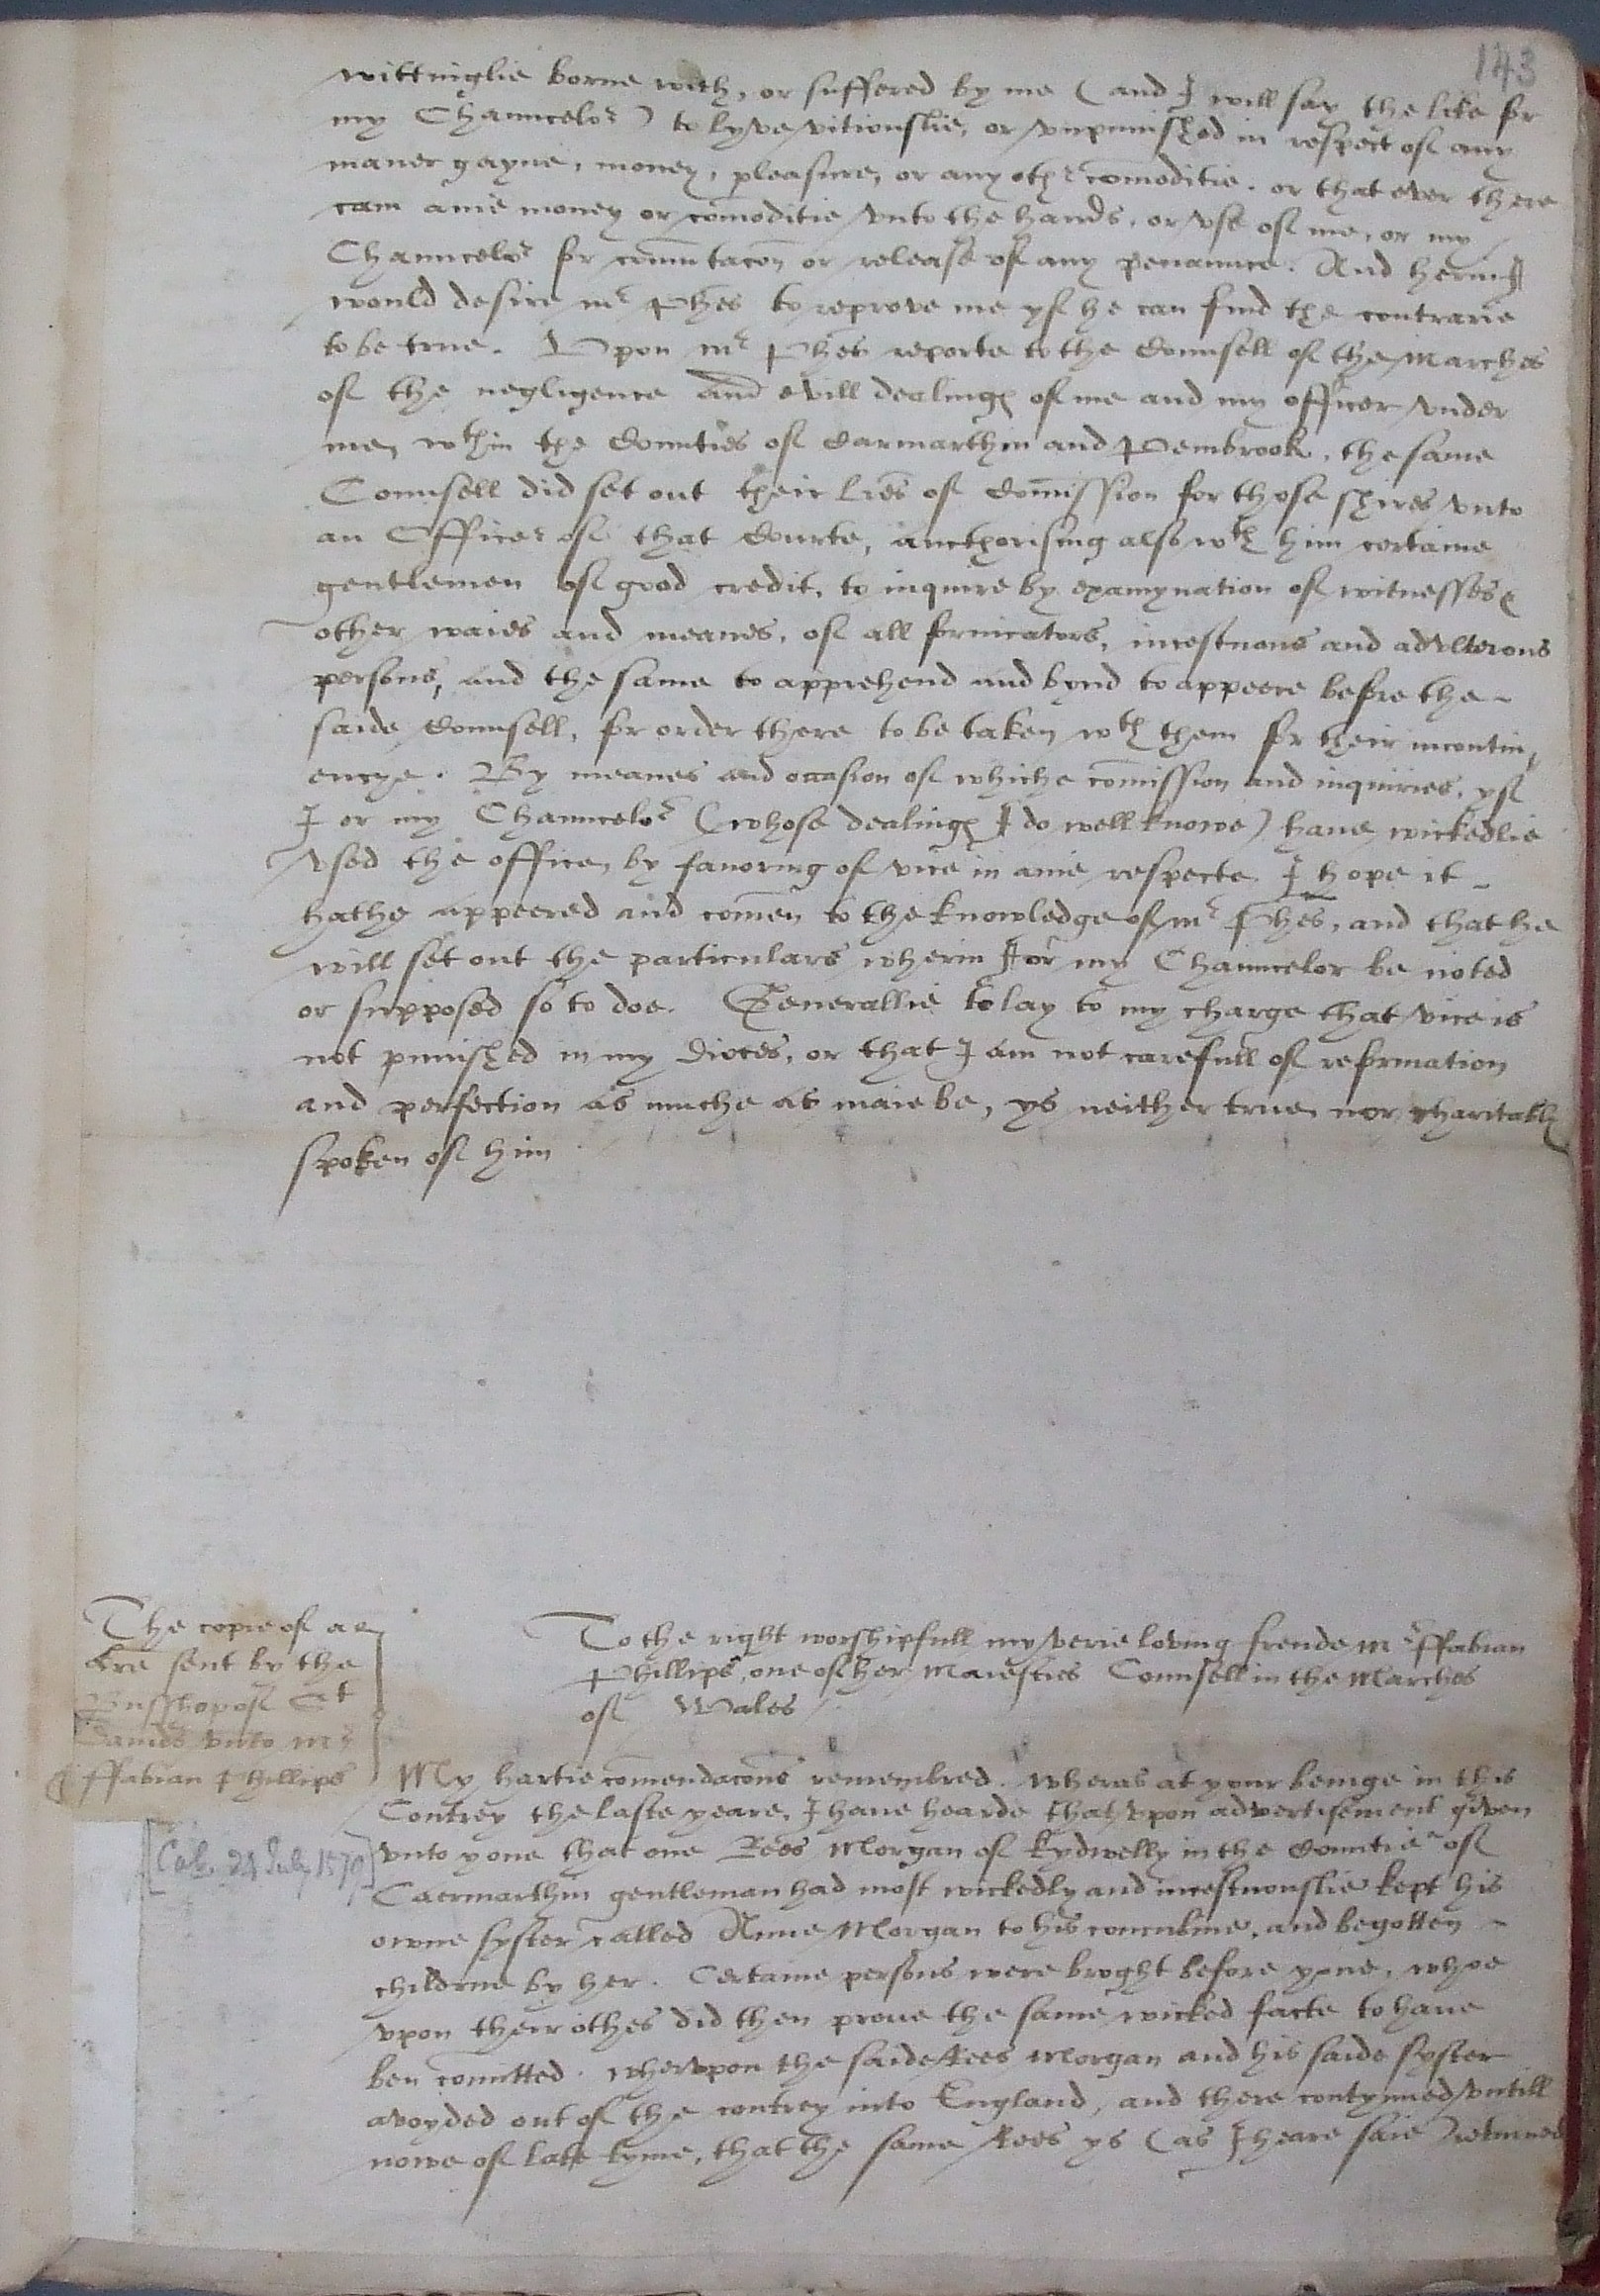 143
wittinglie borne with, or suffered by me (and I will say the like for
my Chauncelor) to lyve vitiouslie, or vnpunished in respect of any
maner gayne, money, pleasure, or any othr comoditie. or that ever there
cam anie money or comoditie vnto the hands, or vse of me, or my
Chauncelor for comutacon or release of any penaunce. And herin I
would desire mr Phes to reprove me yf he can find the contrarie
to be true. Vpon mr Phes reporte to the Counsell of the Marches
of the negligence and evill dealinges of me and my officer vnder
me, wthin the Counties of Carmarthin and Pembrook, the same
Counsell did set out their lres of Comission for those shires vnto
an Officer of that Courte, aucthorising also wth him certaine
gentlemen of good credit, to inquire by examynation of witnesses &
other waies and meanes, of all fornicators, incestuous and adulterous
persons, and the same to apprehend and bynd to appeere before the
saide Counsell, for order there to be taken wth them for their incontin,
encye. By meanes and occasion of whiche comission and inquiries, yf
I or my Chauncelor (whose dealinges I do well knowe) haue wickedlie
vsed the office, by favoring of vice in anie respecte I hope it
hathe appeered and comen to the knowledge of mr Phes, and that he
will set out the particulars wherin I or my Chauncelor be noted
or supposed so to doe. Generallie to lay to my charge that vice is
not punished in my dioces, or that I am not carefull of reformation
and perfection as muche as maie be, ys neither true, nor charitably
spoken of him
The copie of a
lre sent by the
Busshop of St
Davids vnto mr
ffabian Phillips
[Cal. 24 July 1570]
To the right worshipfull my verie loving frende Mr ffabian
Phillips, one of her Maiesties Counsell in the Marches
of Wales
My hartie comendacons remembred. Wheras at your beinge in this
Contrey the laste yeare, I haue hearde that vpon advertisement given
vnto youe that one Rees Morgan of Kydwelly in the Countie of
Caermarthin gentleman had most wickedly and incestuouslie kept his
owne syster called Anne Morgan to his concubine, and begotten
childrne by her. Certaine persons were broght before youe, whoe
vpon their othes did then proue the same wicked facte to haue
ben comitted. Whervpon the saide Rees Morgan and his saide syster
avoyded out of the contrey into England, and there contynued vntill
nowe of late tyme, that the same Rees ys (as I heare saie) returned